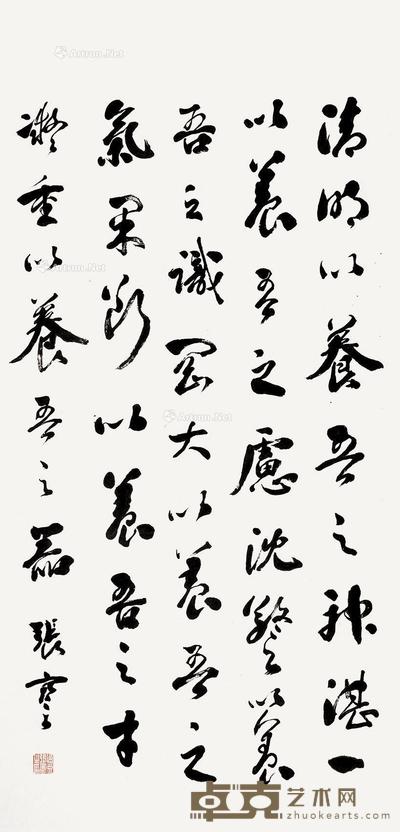 清明以養吾之神湛一
以養吾之慮沈警以養
吾之識剛大以養吾之
氣果斷以養吾之才
凝重以養吾之器 張謇
Artron.Net
Artron.Net
Artron.Net
Artron.Net
卓克艺术网
zhuokearts.com